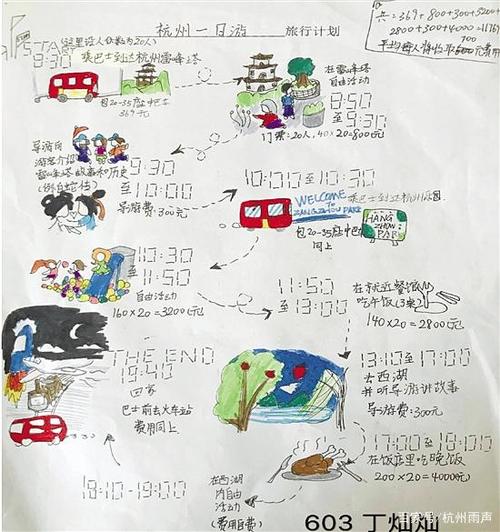 杭州一日游
旅行计划
START
(这里设人们数为20人)
9:30
乘巴士到达杭州雷峰塔
包20-35座中巴车
369元
共=369+800+300+3200+
2800+300+4000=11769
平均每人
元费用
在雷峰塔
自由活动
9:50
至
9:30
门票:20人,40×20=800元
导游向
游客介绍
雷峰塔故事和历史
(例白蛇传)
9:30
至
10:00
导游费:300元
10:00至10:30
乘巴士到达杭州乐园
WELCOME
TO
HANGZHOW PARK
HANG
ZHOW
PAR
包20-35座中巴
同上
10:30
至
11:50
自由活动
160×20=3200元
11:50
至
13:00
在就近餐饭
吃午饭(3菜)
140×20=2800元
THE END
19:40
回家
巴士前去火车站
费用同上
13:10至17:00
去西湖
并听导游讲故事
导游费:300元
17:00至18:00
在饭店里吃晚饭
200×20=4000元
18:10-19:00
在西湖
内自由
活动
(费用自费)
603 丁灿灿
百家号/杭州雨声